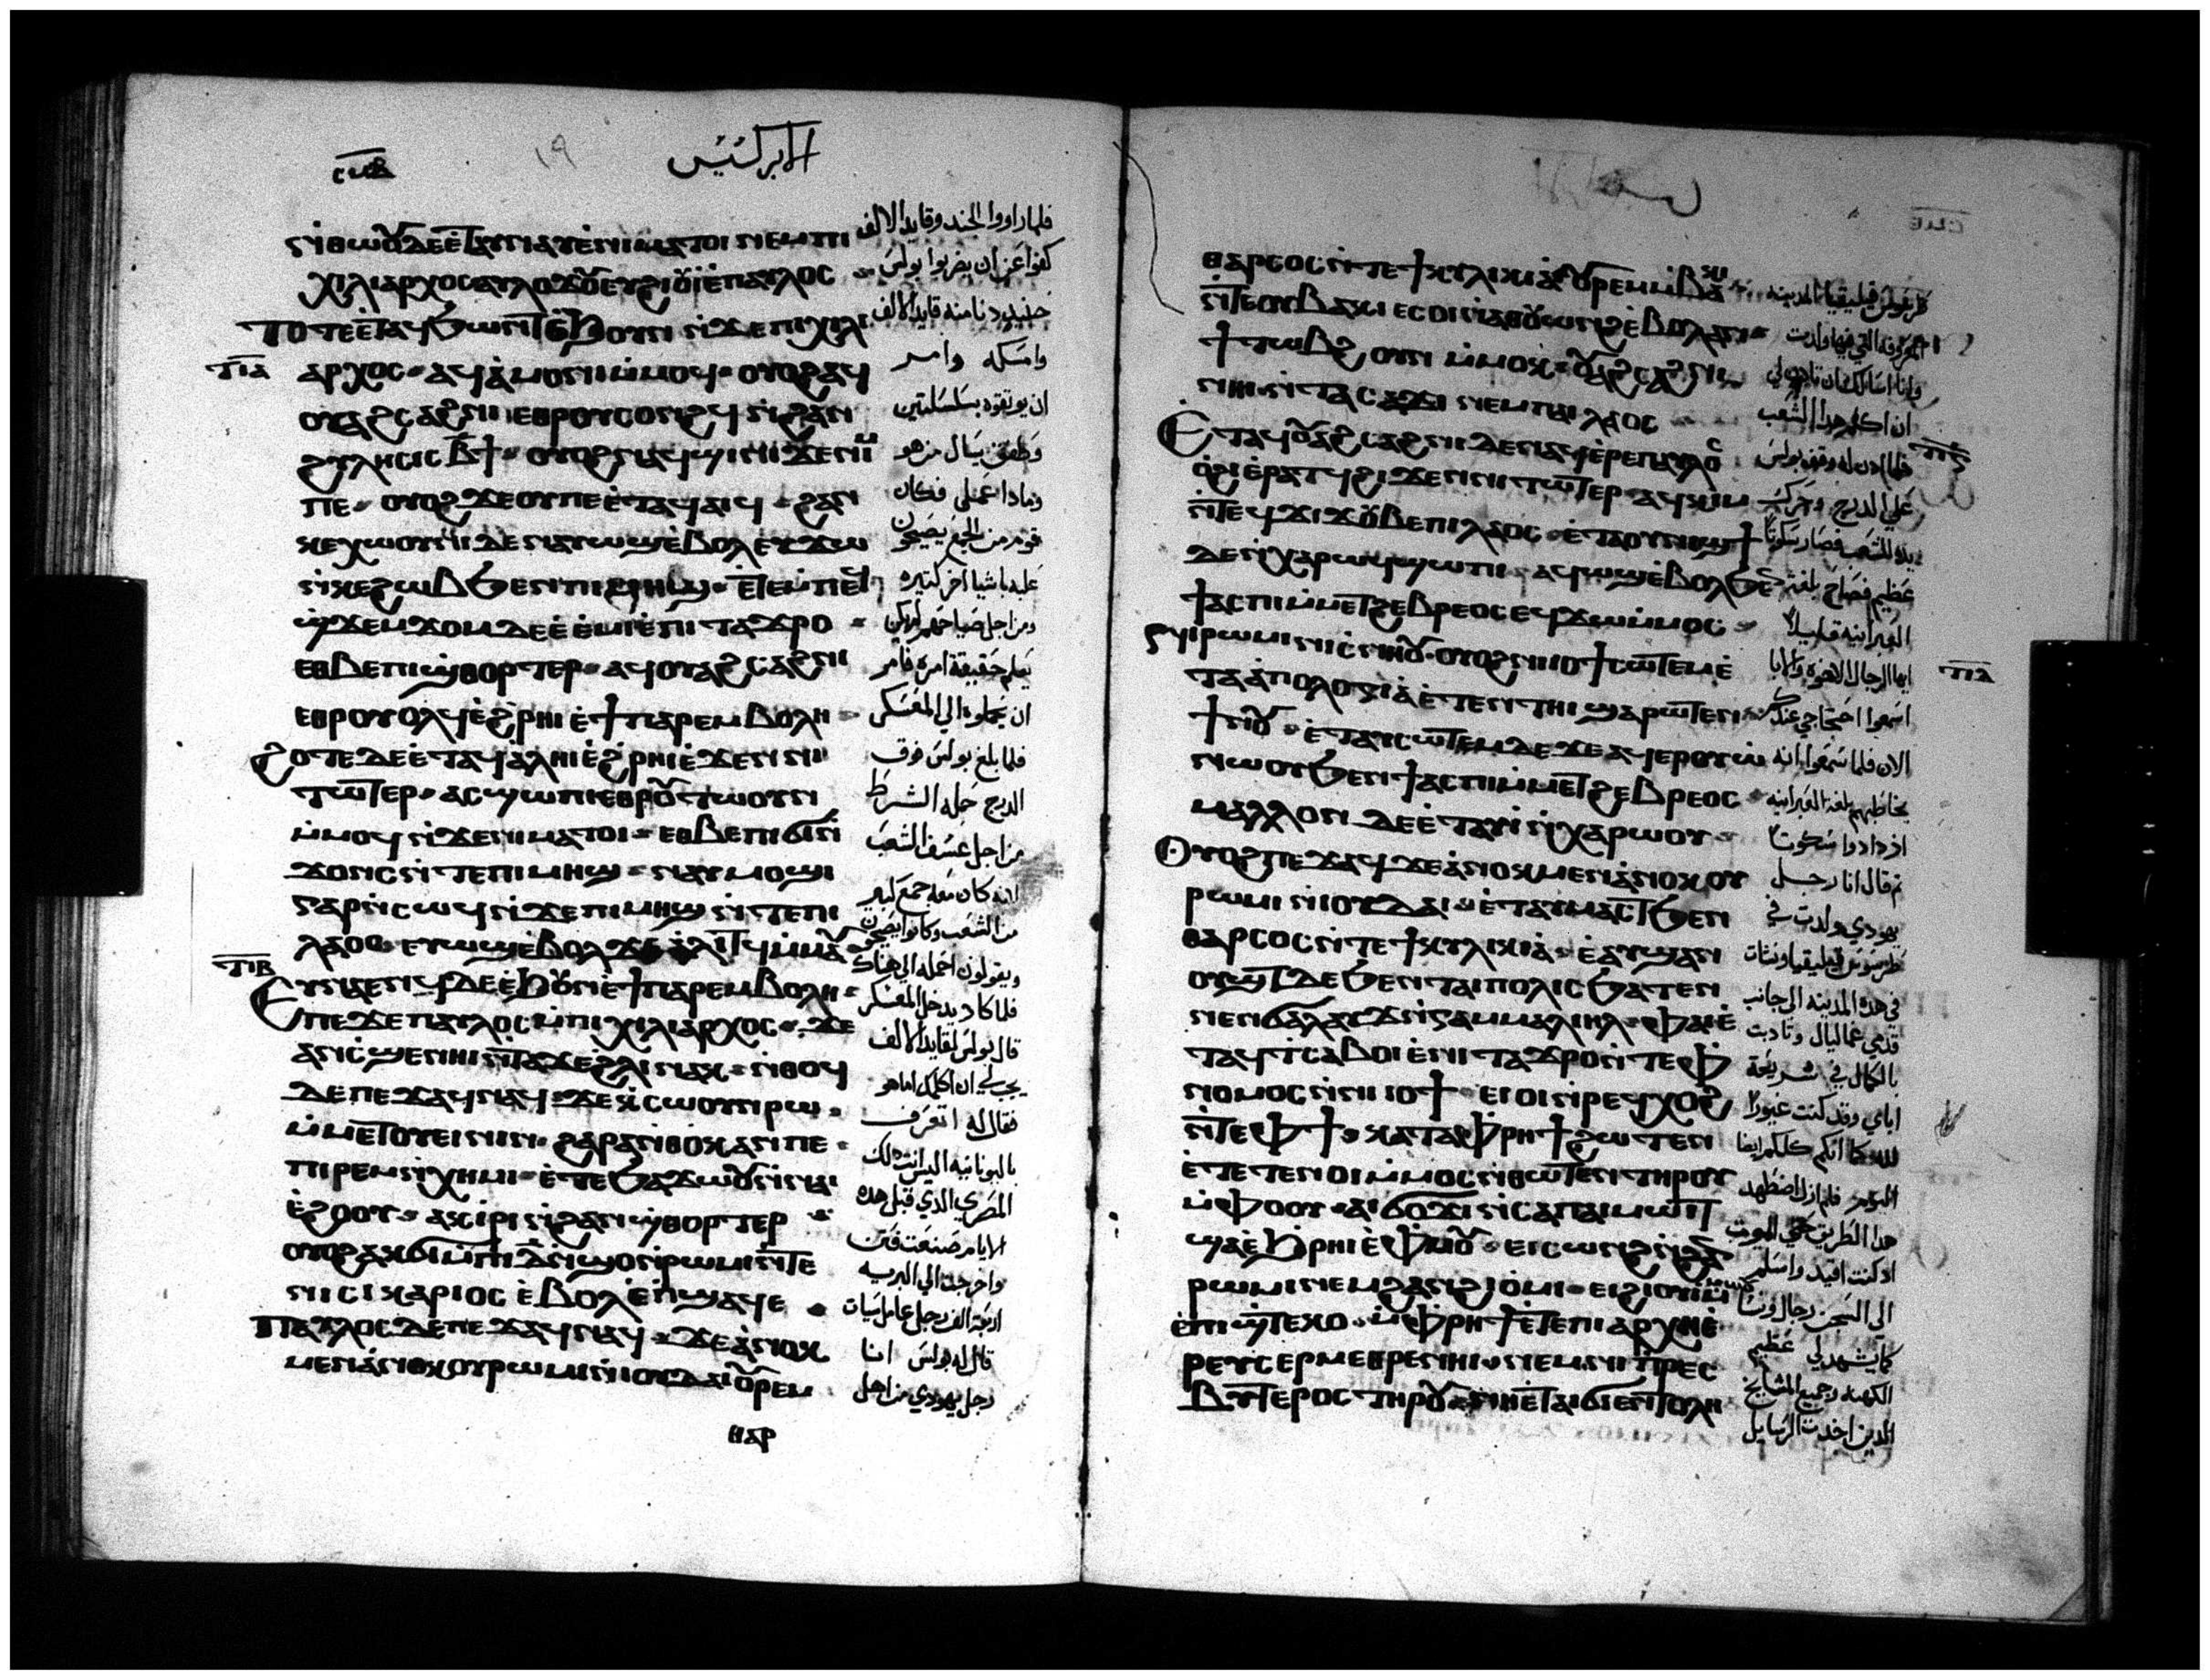 الابركسيس
ⲛ̀ⲑⲱⲟⲩ ⲇⲉ ⲉⲧⲁⲩⲛⲁⲩ ⲉ̀ⲛⲓⲙⲁⲧⲟⲓ ⲛⲉⲙ ⲡⲓ
ⲭⲓⲗⲓⲁⲣⲭⲟⲥ ⲁⲩⲗⲟϫⲟⲩ ⲉⲩϩⲓⲟⲩⲓ̀ ⲉ̀ⲡⲁⲩⲗⲟⲥ
ⲧⲟⲧⲉ ⲉ̀ⲧⲁϥϧⲱⲛⲧ ⲉ̀ϧⲟⲩⲛ ⲛ̀ϫⲉ ⲡⲓⲭⲓⲗⲓ
ⲁⲣⲭⲟⲥ ⲁϥⲁ̀ⲙⲟⲛⲓ ⲙ̀ⲙⲟϥ ⲟⲩⲟϩ ⲁϥ
ⲟⲩⲁϩⲥⲁϩⲛⲓ ⲉⲑⲣⲟⲩⲥⲟⲛϩϥ ⲛ̀ϩⲁⲛ
ϩⲩⲗⲏⲥⲓⲥ ⲃ̄ϯ ⲟⲩⲟϩ ⲛⲁϥϣⲓⲛⲓ ϫⲉ ⲛⲓⲙ
ⲡⲉ ⲟⲩⲟϩ ϫⲉ ⲟⲩ ⲡⲉ ⲉ̀ⲧⲁϥⲁⲓϥ ϩⲁⲛ
ⲕⲉⲭⲱⲟⲩⲛⲓ ⲇⲉ ⲛⲁⲩⲱϣ ⲉ̀ⲃⲟⲗ ⲉⲩϫⲱ
ⲛ̀ⲕⲉϩⲱⲃ ϧⲉⲛ ⲡⲓⲙⲏϣ ⲉ̀ⲧⲉⲙ̀ⲡⲉϥ
ϣ̀ϫⲉⲙϫⲟⲙ ⲇⲉ ⲉ̀ⲉ̀ⲙⲓ ⲉ̀ⲡⲓⲧⲁϫⲣⲟ
ⲉⲑⲃⲉ ⲡⲓϣ̀ⲑⲟⲣⲧⲉⲣ ⲁϥⲟⲩⲁϩⲥⲁϩⲛⲓ
ⲉⲑⲣⲟⲩⲟⲗϥ ⲉ̀ϩ̀ⲣⲏⲓ ⲉ̀ϯⲡⲁⲣⲉⲙⲃⲟⲗⲏ
ϩⲟⲧⲉ ⲇⲉ ⲉ̀ⲧⲁϥⲁ̀ⲗⲏⲓ ⲉ̀ϩ̀ⲣⲏⲓ ⲉ̀ϫⲉⲛ ⲛⲓ
ⲧⲱⲧⲉⲣ ⲁⲥϣⲱⲡⲓ ⲉⲑⲣⲟⲩⲧⲱⲟⲩⲛ
ⲙ̀ⲙⲟϥ ⲛ̀ϫⲉ ⲛⲓⲙⲁⲧⲟⲓ ⲉⲑⲃⲉ ⲡⲓϭⲓⲛ̀
ϫⲟⲛⲥ ⲛ̀ⲧⲉ ⲡⲓⲙⲏϣ ⲛⲁⲩⲙⲟϣⲓ
ⲅⲁⲣ ⲛ̀ⲥⲱϥ ⲛ̀ϫⲉ ⲡⲓⲙⲏϣ ⲛ̀ⲧⲉ ⲡⲓ
ⲗⲁⲟⲥ ⲉⲩⲱϣ ⲉ̀ⲃⲟⲗ ϫⲉ ⲁ̀ⲗⲓⲧϥ ⲙ̀ⲙⲁⲩ
ⲉⲩⲛⲁⲉⲛϥ ⲇⲉ ⲉ̀ϧⲟⲩⲛ ⲉ̀ϯⲡⲁⲣⲉⲙⲃⲟⲗⲏ
ⲡⲉϫⲉ ⲡⲁⲩⲗⲟⲥ ⲙ̀ⲡⲓⲭⲓⲗⲓⲁⲣⲭⲟⲥ ϫⲉ
ⲁⲛ ⲥ̀ϣⲉ ⲛⲏⲓ ⲛ̀ⲧⲁϫⲉ ϩ̀ⲗⲓ ⲛⲁⲕ ⲛ̀ⲑⲟϥ
ⲇⲉ ⲡⲉϫⲁϥ ⲛⲁϥ ϫⲉ ⲕ̀ⲥⲱⲟⲩⲛ ⲣⲱ
ⲙ̀ⲙⲉⲧⲟⲩⲉⲓⲛⲓⲛ ϩⲁⲣⲁ ⲛ̀ⲑⲟⲕ ⲁⲛ ⲡⲉ
ⲡⲓⲣⲉⲙⲛ̀ⲭⲏⲙⲓ ⲉ̀ⲧⲉ ϧⲁϫⲱⲟⲩ ⲛ̀ⲛⲁⲓ
ⲉ̀ϩⲟⲟⲩ ⲁⲕⲓ̀ⲣⲓ ⲛ̀ϩⲁⲛϣ̀ⲑⲟⲣⲧⲉⲣ
ⲟⲩⲟϩ ⲁⲕϭⲓ ⲙ̀ⲡⲓ ⲇ̅ ⲛ̀ϣⲟ ⲛ̀ⲣⲱⲙⲓ ⲛ̀ⲧⲉ
ⲛⲓⲥⲓⲕⲁⲣⲓⲟⲥ ⲉ̀ⲃⲟⲗ ⲉ̀ⲡϣⲁϥⲉ
ⲡⲁⲩⲗⲟⲥ ⲇⲉ ⲡⲉϫⲁϥ ⲛⲁϥ ϫⲉ ⲁ̀ⲛⲟⲕ
ⲙⲉⲛ ⲁ̀ⲛⲟⲕ ⲟⲩⲣⲱⲙⲓ ⲛ̀ⲓⲟⲩⲇⲁⲓ ⲟⲩⲣⲉⲙ
ⲑⲁⲣ
فلما راووا الجند وقايد الالف
كفوا عن ان يضربوا بولس
حينيذ دنا منه قايد الالف
وامسكه وامر
ان يوثقوه بسلسلتين
وطفق يسال من هو
وماذا عملى فكان
قوم من الجمع يصيحون
عليه باشيا اخر كثيره
ومن اجل ضياحهم لم يكن
يعلم حقيقة امره فامر
ان يحملوه الى المعسكر
فلما بلغ بولس فوق
الدرج حمله الشرط
من اجل عسف الشعب
لانه كان معه جمع كبير
من الشعب وكانوا يصيحون
ويقولون احمله الى هناك
فلما كاد يدخل المعسكر
قال بولس لقايد الالف
يجب لي ان اكلمك اما هو
فقال له اتعرف
باليونانيه اليس انت ذلك
المصري الذي قبل هذه
الايام صنعت فتن
واخرجت الى البريه
اربعة الف رجل عاملسيات
قال له بولس انا
رجل يهودي من اهل
ⲑⲁⲣⲥⲟⲥ ⲛ̀ⲧⲉ ϯⲕⲩⲗⲓⲕⲓⲁ̀ ⲟⲩⲣⲉⲙⲙ̀ⲃⲁⲕⲓ
ⲛ̀ⲧⲉ ⲟⲩⲃⲁⲕⲓ ⲉⲥⲟⲓ ⲛ̀ⲁⲑⲟⲩⲱⲛϩ ⲉ̀ⲃⲟⲗ ⲁⲛ
ϯⲧⲱⲃϩ ⲟⲩⲛ ⲙ̀ⲙⲟⲕ ⲟⲩⲁϩⲥⲁϩⲛⲓ
ⲛⲏⲓ ⲛ̀ⲧⲁⲥⲁϫⲓ ⲛⲉⲙ ⲡⲁⲓⲗⲁⲟⲥ
ⲉⲧⲁϥⲟⲩⲁϩⲥⲁϩⲛⲓ ⲇⲉ ⲛⲁϥ ⲉ̀ⲣⲉ ⲡⲁⲩⲗⲟⲥ
ⲟ̀ϩⲓ ⲉ̀ⲣⲁⲧϥ ϩⲓϫⲉⲛ ⲛⲓⲧⲱⲧⲉⲣ ⲁϥⲕⲓⲙ
ⲛ̀ⲧⲉϥϫⲓϫ ⲟⲩⲃⲉ ⲡⲓⲗⲁⲟⲥ ⲉ̀ⲧⲁ ⲟⲩⲛⲓϣϯ
ⲇⲉ ⲛ̀ⲭⲁⲣⲱϥ ϣⲱⲡⲓ ⲁϥⲱϣ ⲉ̀ⲃⲟⲗ ϧⲉⲛ
ϯⲁⲥⲡⲓ ⲙ̀ⲙⲉⲧϩⲉⲃⲣⲉⲟⲥ ⲉϥϫⲱ ⲙ̀ⲙⲟⲥ
ⲛⲓⲣⲱⲙⲓ ⲛⲓⲥ̀ⲛⲏⲟⲩ ⲟⲩⲟϩ ⲛⲓⲓⲟϯ ⲥⲱⲧⲉⲙ ⲉ̀
ⲧⲁⲁ̀ⲡⲟⲗⲟⲅⲓⲁ̀ ⲉ̀ⲧⲉⲛⲧⲏⲓ ϣⲁⲣⲱⲧⲉⲛ
ϯⲛⲟⲩ ⲉ̀ⲧⲁⲩⲥⲱⲧⲉⲙ ⲇⲉ ϫⲉ ⲁϥⲉⲣⲟⲩⲱ̀
ⲛⲱⲟⲩ ϧⲉⲛ ϯⲁⲥⲡⲓ ⲙ̀ⲙⲉⲧϩⲉⲃⲣⲉⲟⲥ
ⲙⲁⲗⲗⲟⲛ ⲇⲉ ⲉ̀ⲧⲁⲩⲓ̀ ⲛ̀ⲭⲁⲣⲱⲟⲩ
ⲟⲩⲟϩ ⲡⲉϫⲁϥ ϫⲉ ⲁ̀ⲛⲟⲕ ⲙⲉⲛ ⲁ̀ⲛⲟⲕ ⲟⲩ
ⲣⲱⲙⲓ ⲛ̀ⲓⲟⲩⲇⲁⲓ ⲉ̀ⲧⲁⲩⲙⲁⲥⲧ ϧⲉⲛ
ⲑⲁⲣⲥⲟⲥ ⲛ̀ⲧⲉ ϯⲕⲩⲗⲓⲕⲓⲁ̀ ⲉ̀ⲁⲩϣⲁⲛ
ⲟⲩϣⲧ ⲇⲉ ϧⲉⲛ ⲧⲁⲓⲡⲟⲗⲓⲥ ϧⲁⲧⲉⲛ
ⲛⲉⲛϭⲁⲗⲁⲩϫ ⲛ̀ⲅⲁⲙⲙⲁⲗⲓⲏⲗ ⲫⲁⲓ ⲉ̀
ⲧⲁϥⲧ̀ⲥⲁⲃⲟⲓ ⲉ̀ⲛⲓⲧⲁϫⲣⲟ ⲛ̀ⲧⲉ ⲫ̀
ⲛⲟⲙⲟⲥ ⲛ̀ⲛⲓⲓⲟϯ ⲉⲓⲟⲓ ⲛ̀ⲣⲉϥⲭⲟϩ
ⲛ̀ⲧⲉ ⲫϯ ⲕⲁⲧⲁ ⲫⲣⲏϯ ϩⲱⲧⲉⲛ
ⲉ̀ⲧⲉⲧⲉⲛⲟⲓ ⲙ̀ⲙⲟⲥ ⲛ̀ⲑⲱⲧⲉⲛ ⲧⲏⲣⲟⲩ
ⲙ̀ⲫⲟⲟⲩ ⲁⲓϭⲟϫⲓ ⲛ̀ⲥⲁ ⲡⲁⲓⲙⲱⲓⲧ
ϣⲁ ⲉ̀ϧ̀ⲣⲏⲓ ⲉ̀ⲫⲙⲟⲩ ⲉⲓⲥⲱⲛϩ ⲛ̀ϩⲁⲛ
ⲣⲱⲙⲓ ⲛⲉⲙ ϩⲁⲛϩⲓⲟ̀ⲙⲓ ⲉⲓϩⲓⲟⲩⲓ̀ ⲙ̀ⲙⲱⲟⲩ
ⲉ̀ⲡⲓϣ̀ⲧⲉⲕⲟ ⲙ̀ⲫⲣⲏϯ ⲉ̀ⲧⲉ ⲡⲓⲁⲣⲭⲏⲉ̀
ⲣⲉⲩⲥ ⲉⲣⲙⲉⲑⲣⲉ ⲛⲏⲓ ⲛⲉⲙ ⲛⲓⲡⲣⲉⲥ
ⲃⲩⲧⲉⲣⲟⲥ ⲧⲏⲣⲟⲩ ⲛⲏ ⲉ̀ⲧⲁⲓϭⲓ ⲉⲡⲓⲧⲟⲗⲏ
طرسوس قيليقيا المدينه
المعروفه التي فيها ولدت
وانا اسالك ان تاذن لي
ان اكلم هذا الشعب
فلما اذن له وقف بولس
على الدرج وحرك
يده للشعب فصار سكوتا
عظيم فصاح بلغة
العبرانيه قايلا
ايها الرجال الاخوه والابا
اسمعوا احتجاجي عندكم
الان فلما سمعوا انه
يخاطبهم بلغة العبرانيه
ازدادوا سكوتا
ثم قال انا رجل
يهودي ولدت في
طرسوس قيليقيا ونشات
في هذه المدينه الى جانب
قدمي غماليال وتادبت
بالكمال في شريعة
اباي وقد كنت غيورا
لله كما انكم كلكم ايضا
اليوم فلم ازل اضطهد
هذا الطريق حتى الموت
اذ كنت اقيد واسلم
الى السجن رجال ونسا
كما يشهد لي عظيم
الكهنه وجميع المشايخ
الذين اخذت الرسايل